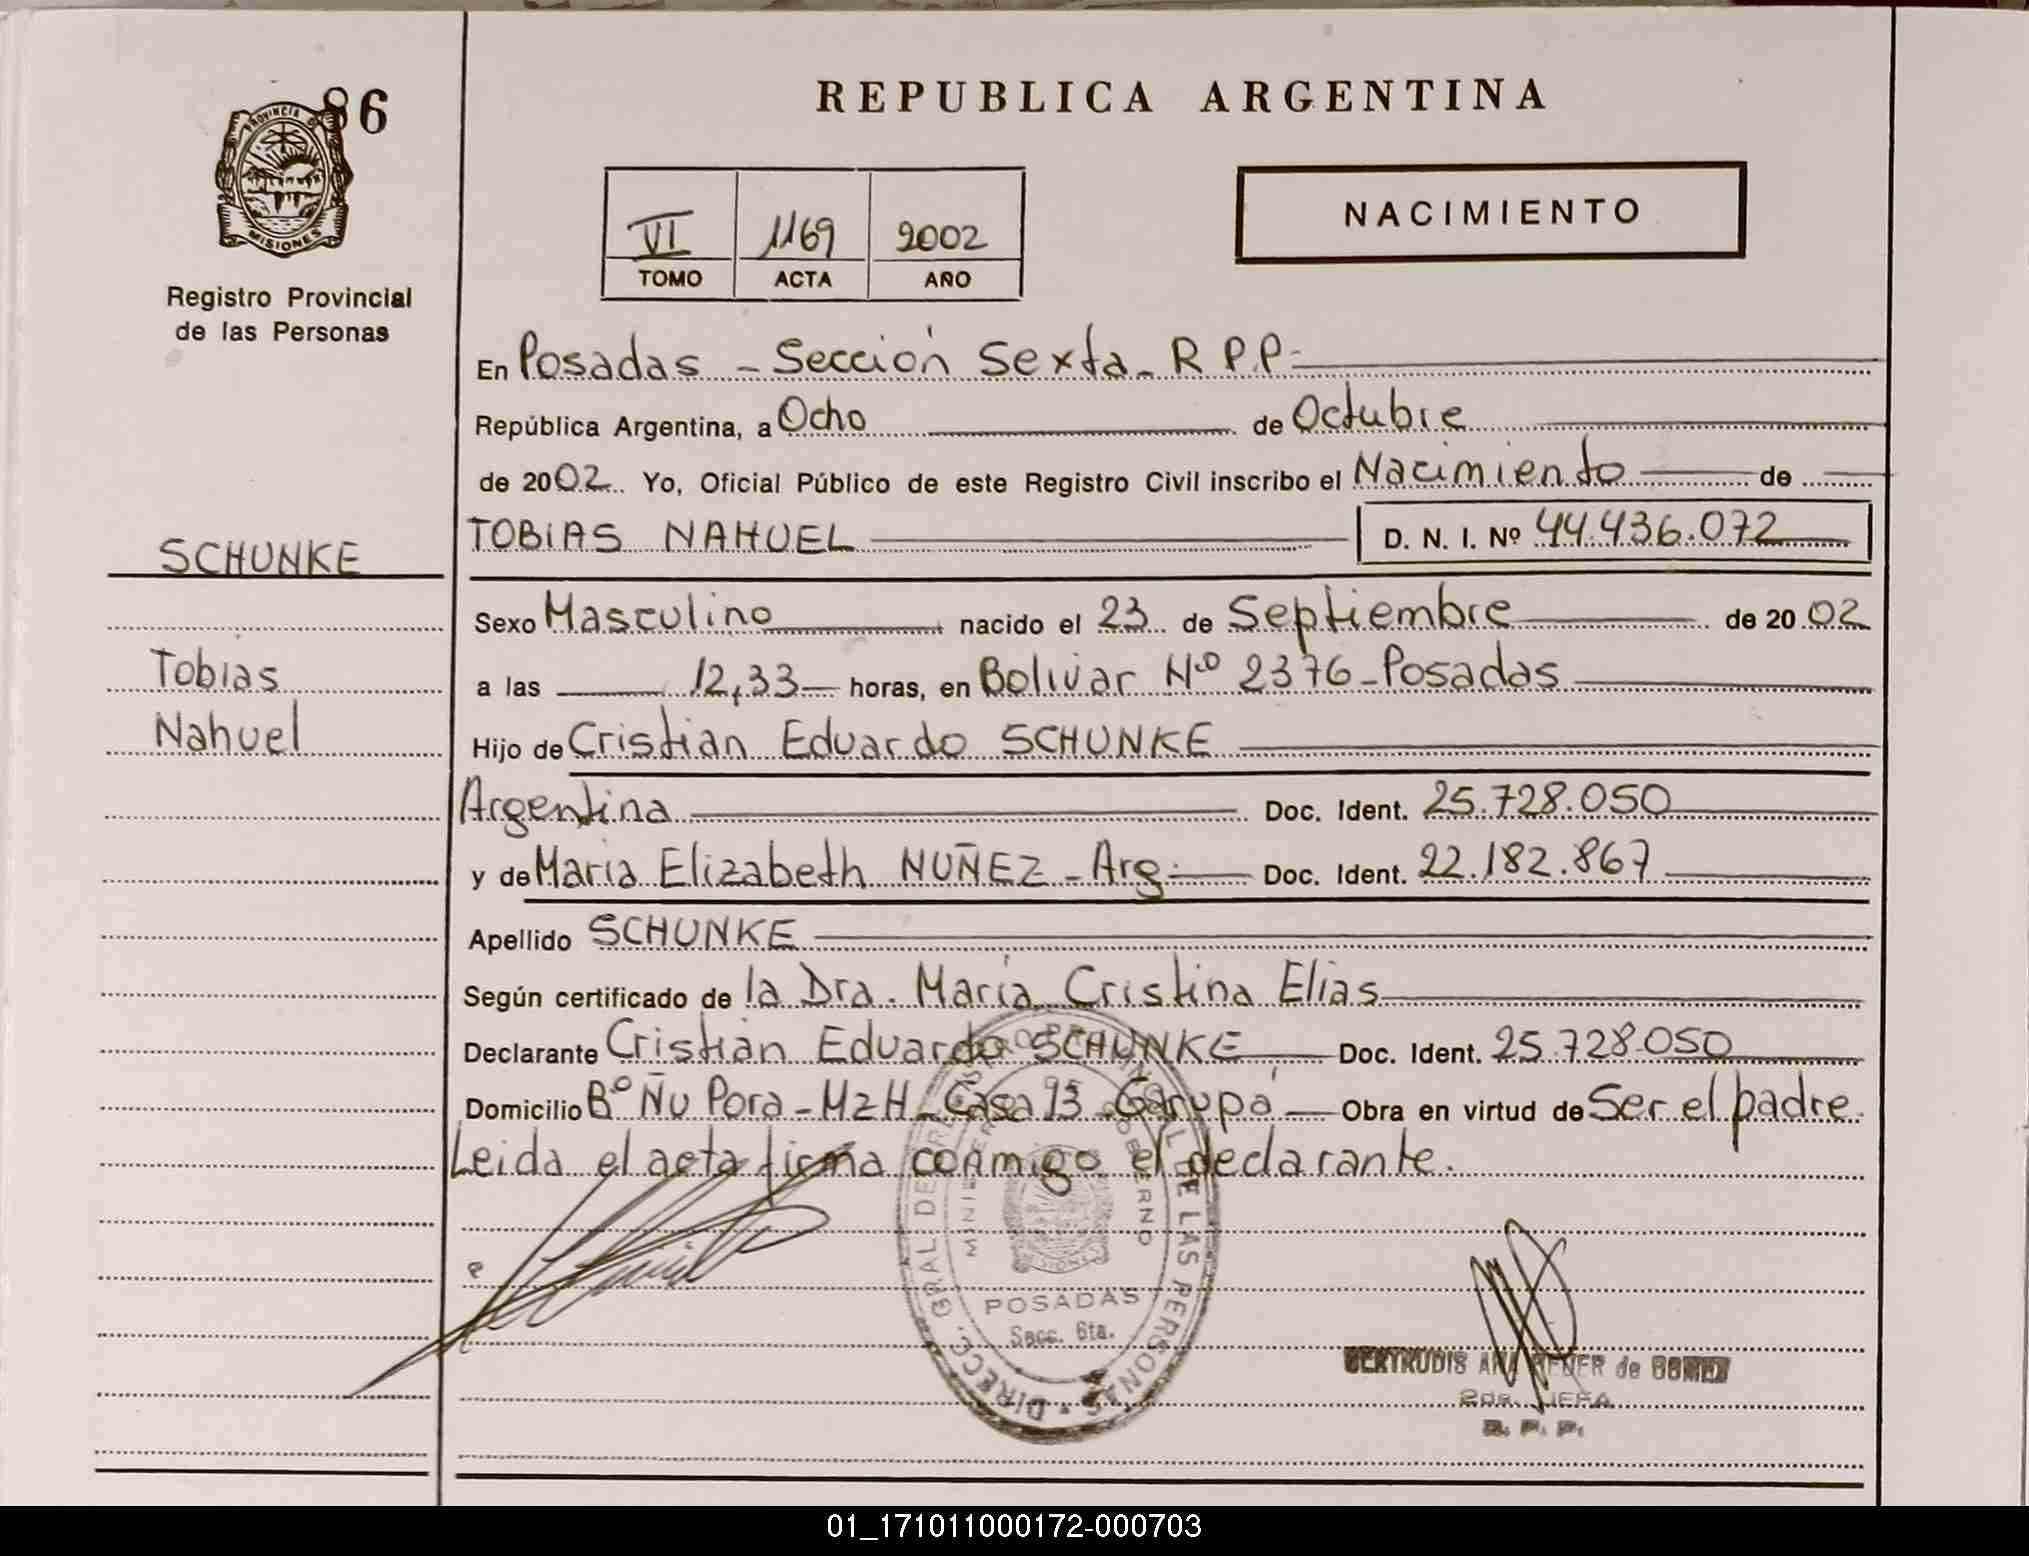 86
PROVINCIA DE
MISIONES
Registro Provincial
de las Personas
REPUBLICA ARGENTINA
VI 1169 2002
TOMO ACTA AÑO
NACIMIENTO
En Posadas - Sección Sexta - R P.P.-
República Argentina, a Ocho de Octubre
de 2002 Yo, Oficial Público de este Registro Civil inscribo el Nacimiento de
SCHUNKE
Tobias
Nahuel
TOBIAS NAHUEL D. N. I. Nº 44.436.072
Sexo Masculino nacido el 23 de Septiembre de 2002
a las 12,33 horas, en Bolivar Nº 2376 - Posadas
Hijo de Cristian Eduardo SCHUNKE
Argentina Doc. Ident. 25.728.050
y de Maria Elizabeth NUÑEZ - Arg. Doc. Ident. 22.182.867
Apellido SCHUNKE
Según certificado de la Dra. María Cristina Elias
Declarante Cristian Eduardo SCHUNKE Doc. Ident. 25.728.050
Domicilio Bº Ñu Pora - Mz H - Casa 13 - Garupá Obra en virtud de Ser el padre.
Leida el acta firma conmigo el declarante.
DIRECC. GRAL DE REGISTRO PROVINCIAL DE LAS PERSONAS
MINISTERIO GOBIERNO
MISIONES
POSADAS
Secc. 6ta.
GERTRUDIS ANA de
2da. JEFA
R. P. P.
01_171011000172-000703